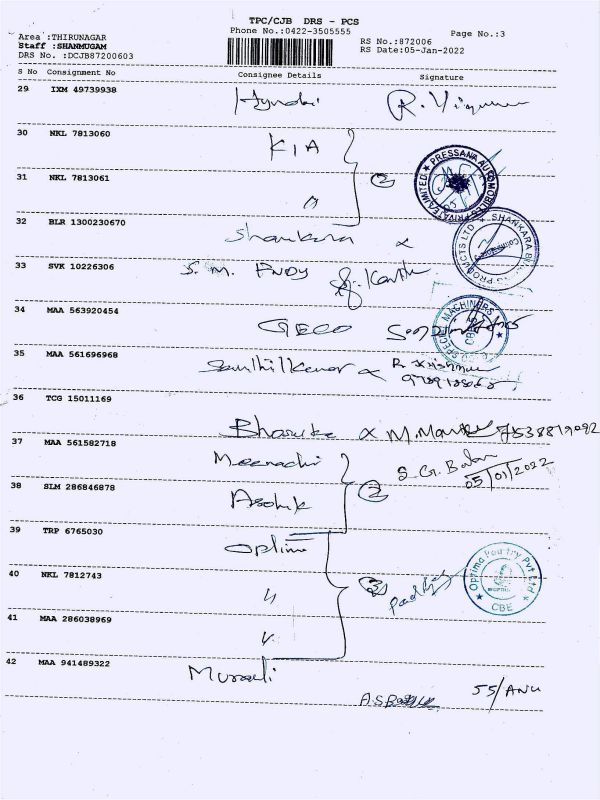 TPC/CJB DRS - PCS
Phone No.:0422-3505555
Page No.:3
Area :THIRUNAGAR
Staff :SHANMUGAM
DRS No. :DCJB87200603
RS No.:872006
RS Date:05-Jan-2022
S No Consignment No Consignee Details Signature
29 IXM 49739938 Hyundai R.
30 NKL 7813060 KIA
31 NKL 7813061 " 2
PRESSANA AUTOMOBILES PRIVATE LIMITED
32 BLR 1300230670 Shankara
SHANKARA PRODUCTS LTD
33 SVK 10226306 S.M.
34 MAA 563920454 GECO
SPECIAL MACHINERS
CBE
35 MAA 561696968 Senthilkumar
36 TCG 15011169 Bharuka M. 7538819082
37 MAA 561582718 Meenachi
S. G. Balan
05/01/2022
38 SLM 286846878 Ashok 2
39 TRP 6765030 Optima
40 NKL 7812743 " 3
Optima Poultry Pvt Ltd
CBE
41 MAA 286038969 "
42 MAA 941489322 Murali
55/ANU